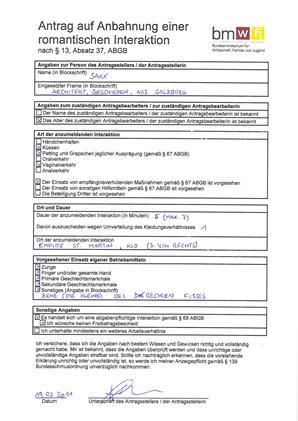 Antrag auf Anbahnung einer
romantischen Interaktion
nach § 13, Absatz 37, ABGB
bmwfi
Bundesministerium für
Wirtschaft, Familie und Jugend
Angaben zur Person des Antragstellers / der Antragstellerin
Name (in Blockschrift)
SAXX
Eingesetzter Frame (in Blockschrift)
ARCHITEKT, GESCHIEDEN, AUS SALZBURG
Angaben zum zuständigen Antragsbearbeiters / zur zuständigen Antragsbearbeiterin
Der Name des zuständigen Antragsbearbeiters / der zuständigen Antragsbearbeiterin ist bekannt
Das Alter des zuständigen Antragsbearbeiters / der zuständigen Antragsbearbeiterin ist bekannt
Art der anzumeldenden Interaktion
Händchenhalten
Küssen
Petting und Grapschen jeglicher Ausprägung (gemäß § 67 ABGB)
Oralverkehr
Vaginalverkehr
Analverkehr
Der Einsatz von empfängnisverhütenden Maßnahmen gemäß § 67 ABGB ist vorgesehen
Der Einsatz von sonstigen Hilfsmitteln gemäß § 67 ABGB ist vorgesehen
Die Beteiligung Dritter ist vorgesehen
Ort und Dauer
Dauer der anzumeldenden Interaktion (in Minuten) 5 (MAX. 7)
Davon auszuscheiden wegen Umverteilung des Kleidungsverhältnisses 1
Ort der anzumeldenden Interaktion
EMPIRE ST. MARTIN, KLO (3. VON RECHTS)
Vorgesehener Einsatz eigener Betriebsmittel
Zunge
Finger und/oder gesamte Hand
Primäre Geschlechtsmerkmale
Sekundäre Geschlechtsmerkmale
Sonstige (Angabe in Blockschrift)
ZEHE (DIE KLEINE) DES RECHTEN FUSSES
Sonstige Angaben
Es handelt sich um eine abgabenpflichtige Interaktion gemäß § 68 ABGB
Ich wünsche keinen Freibetragsbescheid
Ich unterhalte mindestens ein weiteres Arbeitsverhältnis
Ich versichere, dass ich die Angaben nach bestem Wissen und Gewissen richtig und vollständig
gemacht habe. Mir ist bekannt, dass die Angaben überprüft werden und dass unrichtige oder
unvollständige Angaben strafbar sind. Sollte ich nachträglich erkennen, dass die vorstehende
Erklärung unrichtig oder unvollständig ist, so werde ich meiner Anzeigepflicht gemäß § 139
Bundesschmusordnung unverzüglich nachkommen.
19.02.2011
Datum
Unterschrift des Antragstellers / der Antragstellerin